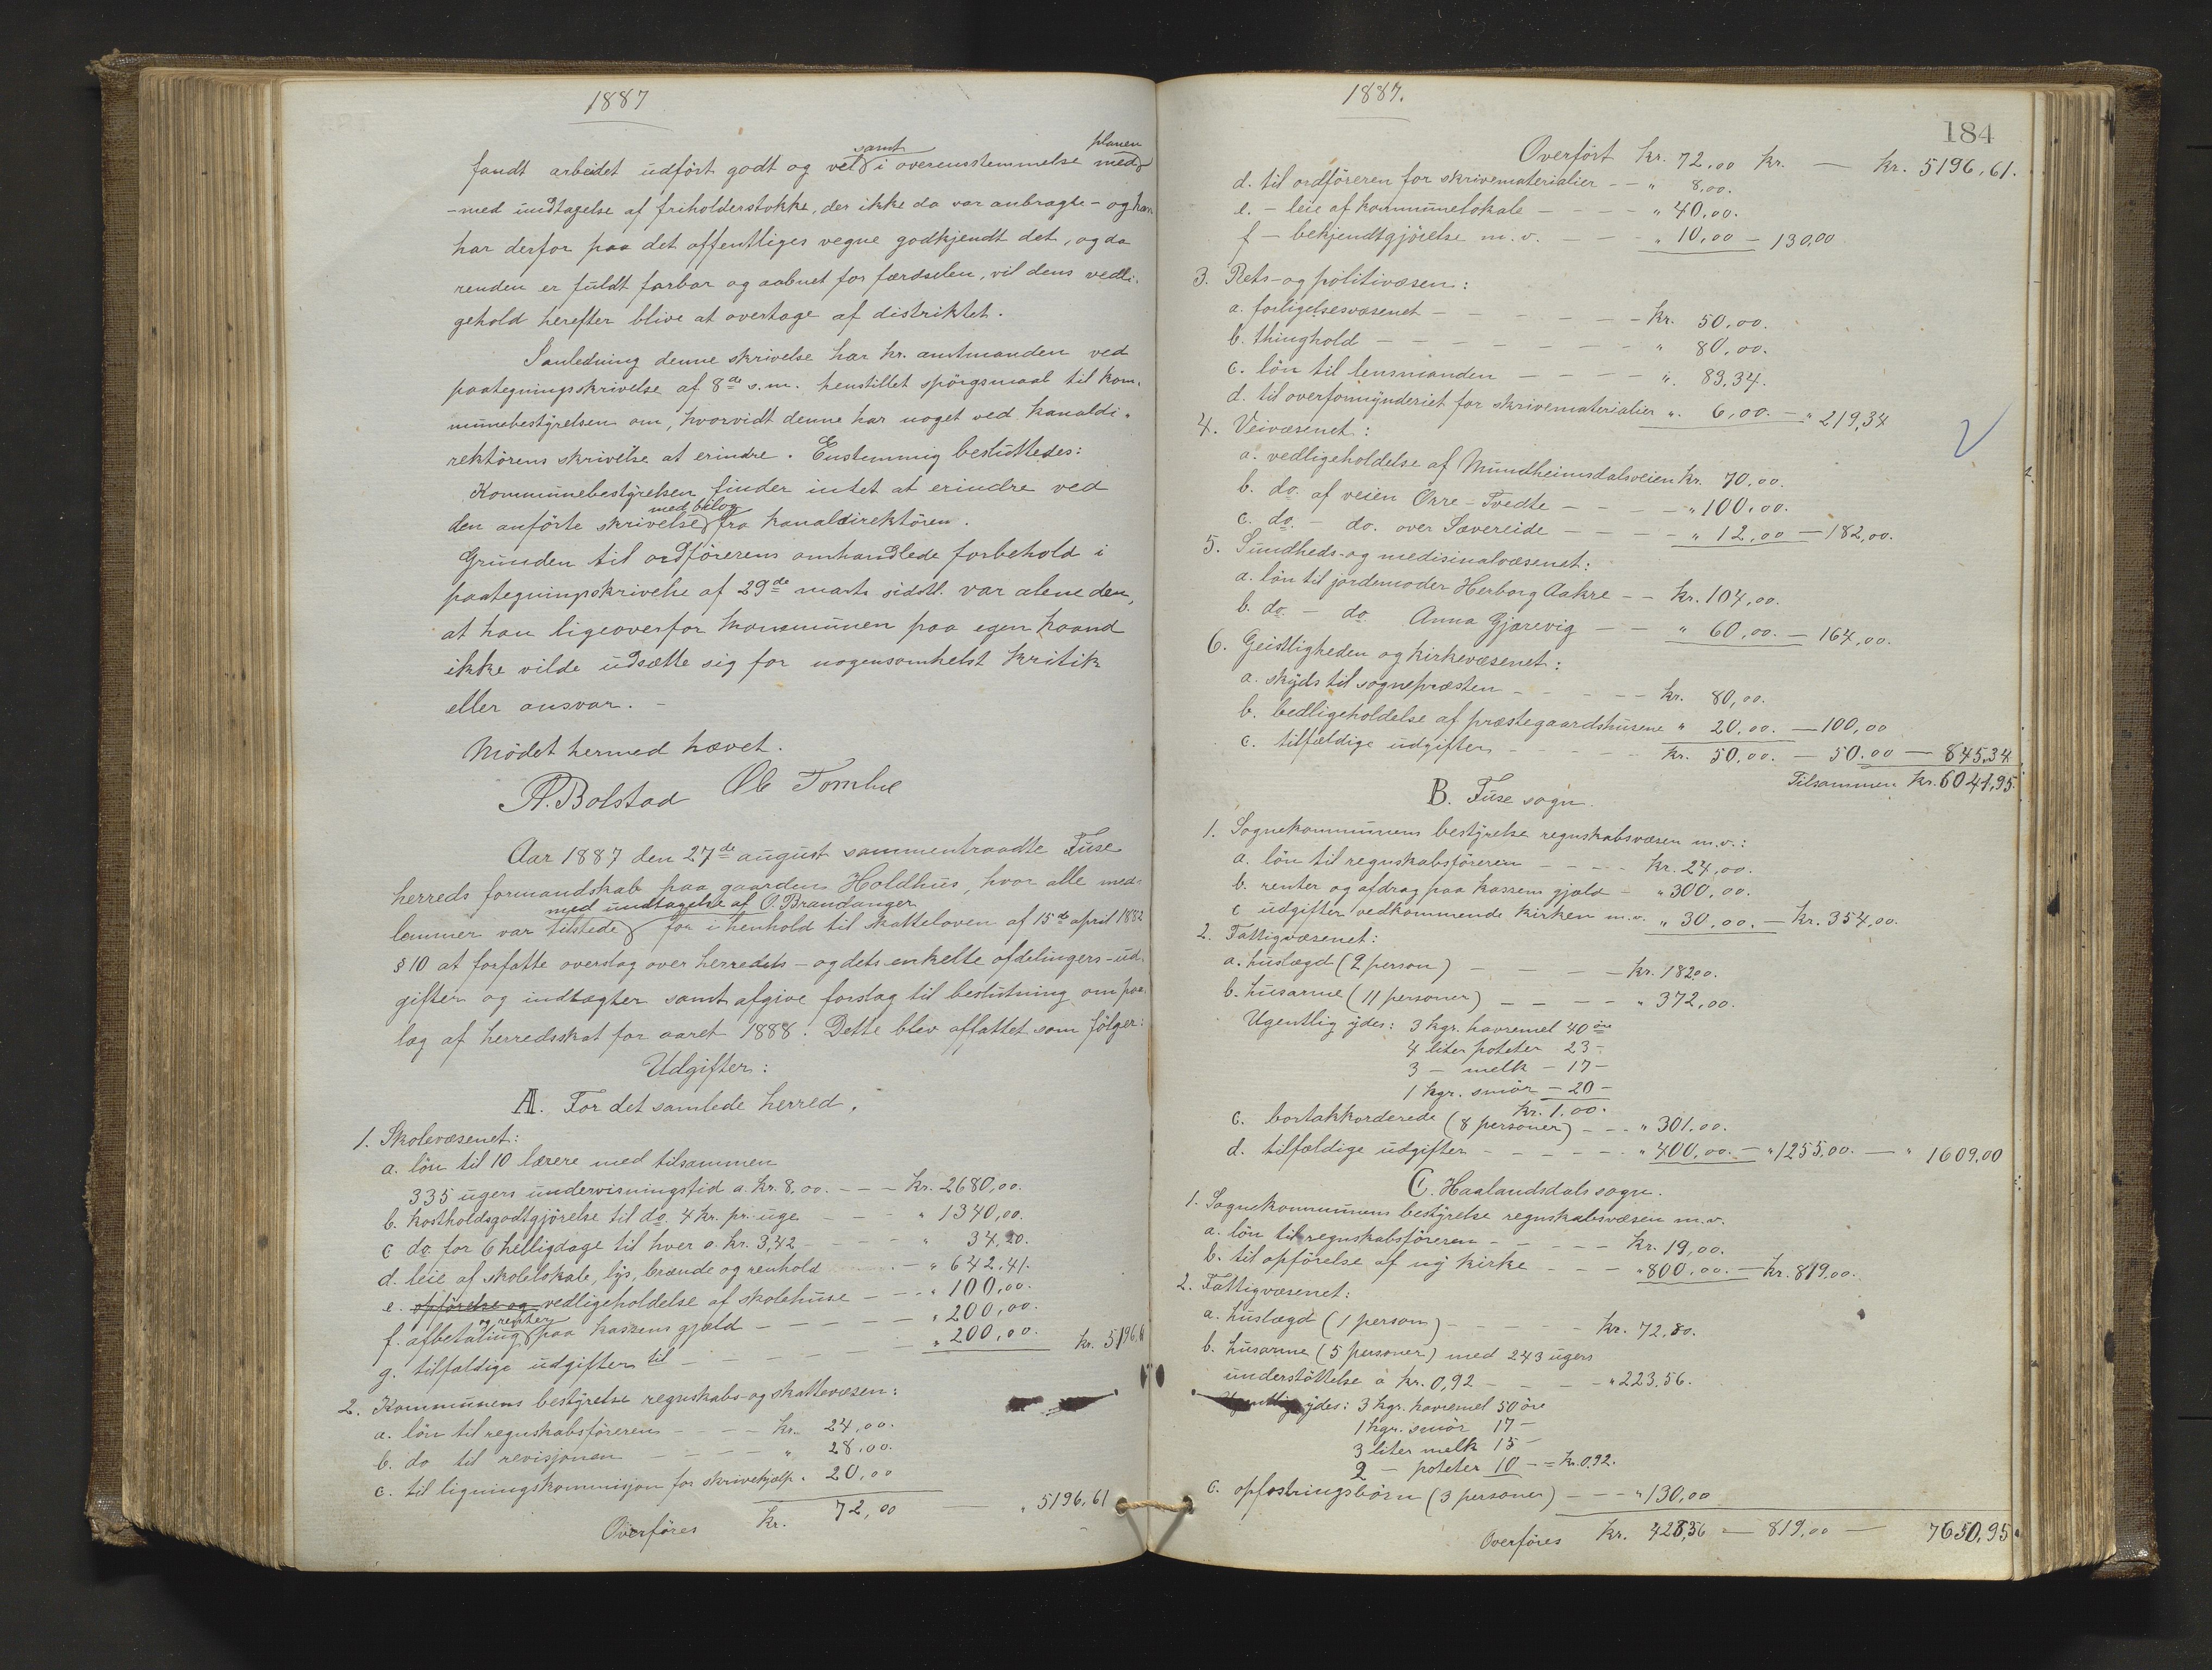 1887
fandt arbeidet udført godt og vel samt i overensstemmelse med planen
- med undtagelse af friholderstokke, der ikke da var anbragte - og han
har derfor paa det offentliges vegne godkjendt det, og da
renden er fuldt farbar og aabnet for færdselen, vil dens vedli-
gehold herefter blive at overtage af distriktet.
I anledning denne skrivelse har hr. amtmanden ved
paategningsskrivelse af 8de s.m. henstillet spörgsmaal til kom-
munebestyrelsen om, hvorvidt denne har noget ved kanaldi-
rektörens skrivelse at erindre. Enstemmig besluttedes:
Kommunebestyrelsen finder intet at erindre ved
den anförte skrivelse med bilag fra kanaldirektören.
Grunden til ordförerens omhandlede forbehold i
paategningsskrivelse af 29de marts sidstl. var alene den,
at han ligeoverfor kommunen paa egen haand
ikke vilde udsætte sig for nogensomhelst kritik
eller ansvar. -
Mödet hermed hævet.
A. Bolstad Ole Tombre
Aar 1887 den 27de august sammentraadte Fuse
herreds formandskab paa gaarden Holdhus, hvor alle med-
lemmer var tilstede med undtagelse af O. Brandanger for i henhold til skatteloven af 15de april 1882
§ 10 at forfatte overslag over herredets - og dets enkelte afdelingers - ud-
gifter og indtægter samt afgive forslag til beslutning om paa-
læg af herredsskat for aaret 1888. Dette blev affattet som fölger:
Udgifter:
A. For det samlede herred.
1. Skolevæsenet:
a. lön til 10 lærere med tilsammen
335 ugers undervisningstid a. kr. 8,00. - - - kr. 2680,00.
b. kostholdsgodtgjörelse til do. 4 kr. pr. uge - - - " 1340,00.
c do. for 6 helligdage til hver a. kr. 3,42 - - - " 34.20.
d. leie af skolelokale, lys, brænde og renhold - " 642,41.
e. opförelse og vedligeholdelse af skolehuse - - - " 100,00.
f. afbetaling og renter paa kassens gjæld - - - - - " 200,00.
g. tilfældige udgifter til - - - - - " 200,00. kr. 5196,61
2. Kommunens bestyrelse regnskabs- og skattevæsen:
a. lön til regnskabsföreren - - - - kr. 24,00.
b. do til revisjonen - - - - " 28,00.
c. til ligningskommisjon for skrivehjælp " 20,00
Overföres kr. 72,00 " 5196,61
1887.
184
Overfört kr. 72,00 kr. - kr. 5196,61.
d. til ordföreren for skrivematerialier - - " 8,00.
e. - leie af kommunelokale - - - - " 40,00.
f - bekjendtgjörelse m.v. - - - " 10,00 - 130,00
3. Rets- og politivæsen:
a. forligelsesvæsenet - - - - - - kr. 50,00.
b. thinghold - - - - - - - " 80,00.
c. lön til lensmanden - - - - ". 89,34.
d. til overformynderiet for skrivematerialier ". 6,00. - " 219,34
4. Veivæsenet:
a. vedligeholdelse af Mundheimsdalsveien kr. 70,00.
b. do. af veien Övre-Tvedte - - - - " 100,00.
c. do. - do. over Sævereide - - - - " 12,00 - 182,00.
5. Sundheds- og medisinalvæsenet:
a. lön til jordemoder Herborg Aakre - - kr. 104,00.
b. do. - do Anna Gjærevig - - " 60,00. - 164,00.
6. Geistligheden og kirkevæsenet:
a. skyds til sognepræsten - - - - - kr. 80,00.
b. bedligeholdelse af præstegaardshusene " 20,00. - 100,00
c. tilfældige udgifter - - - - - kr. 50,00. - 50,00 - 845,34
Tilsammen kr. 6041,95.
B. Fuse sogn.
1. Sognekommunens bestyrelse regnskabsvæsen m.v.:
a. lön til regnskabsföreren - - - - kr. 24,00.
b. renter og afdrag paa kassens gjæld - " 300,00.
c udgifter vedkommende kirken m.v. " 30,00. - kr. 354,00.
2. Fattigvæsenet:
a. huslægd (2 person) - - - - kr. 182,00.
b. husarme (11 personer) - - - - " 372,00.
Ugentlig ydes: 3 kgr. havremel 40 öre
4 liter poteter 23 -
3 - melk - 17 -
1 kgr. smör - 20 -
kr. 1,00.
c. bortakkorderede (8 personer) - - - " 301.00.
d. tilfældige udgifter - - - - - " 400,00. - " 1255,00. - " 1609,00
C. Haalandsdals sogn.
1. Sognekommunens bestyrelse regnskabsvæsen m.v.
a. lön til regnskabsföreren - - - - - kr. 19,00.
b. til opförelse af ny kirke - - - " 800,00. - kr. 819,00.
2. Fattigvæsenet:
a. huslægd (1 person) - - - - - kr. 72,80.
b. husarme (5 personer) med 243 ugers
understöttelse a kr. 0,92 - - - - " 223,56.
Ugentlig ydes: 3 kgr. havremel 50 öre
1 kgr. smör 17 -
3 liter melk 15 -
2 - poteter 10 - = kr. 0,92.
c. opfostringsbörn (3 personer) - - - " 130,00
Overföres kr. 428,36 - 819,00 - 7650,95.